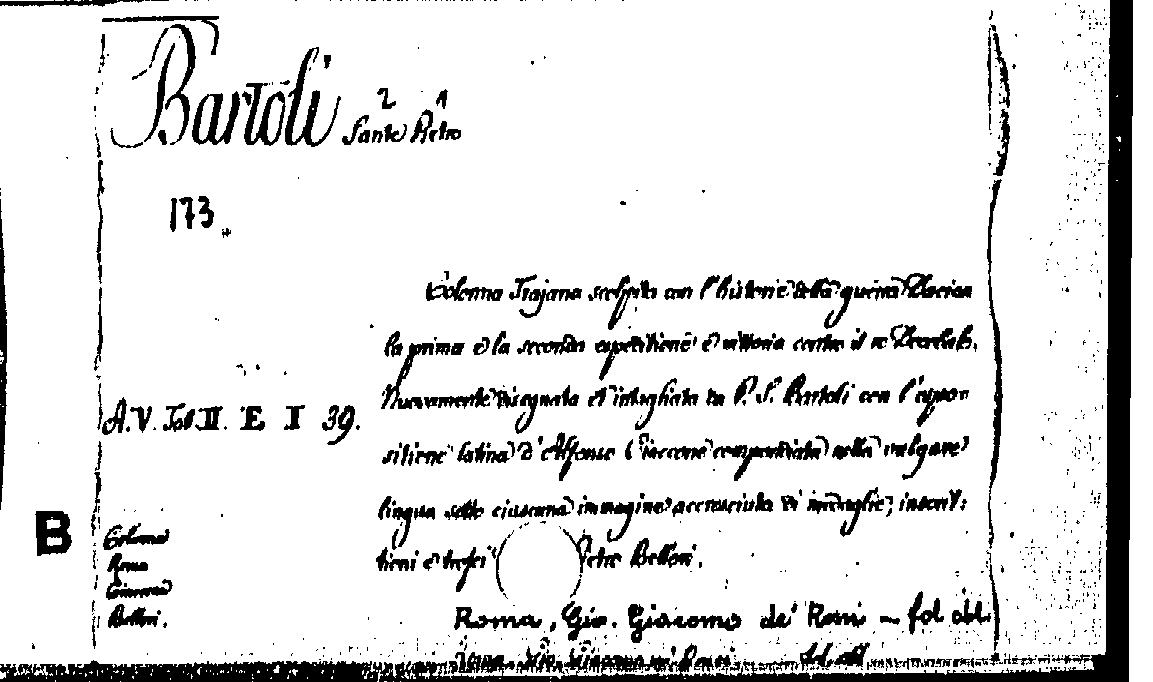 Bartoli Sante Pietro
2 1
173
Colonna Trajana scolpita con l'historie della guerra Dacica
la prima e la seconda expeditione e vittoria contro il re Decebalo.
Nuovamente disegnata et intagliata da P. S. Bartoli con l'espo=
sitione latina d'Alfonso Ciaccone compendiata nella vulgare
A. V. Tab. II. E I 39.
lingua sotto ciascuna immagine accresciuta di medaglie, inscrit:
B
Colonna
tioni e trofei Pietro Belloni.
Roma
Belloni.
Roma, Gio. Giacomo de' Rossi — fol obl.